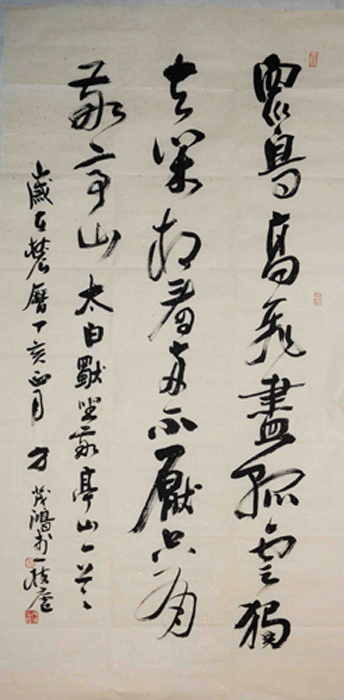 眾鳥高飛盡孤雲獨
去閑相看两不厭只有
敬亭山 太白獨坐敬亭山一首
歲在農曆丁亥正月 方茂鴻於一枝廬